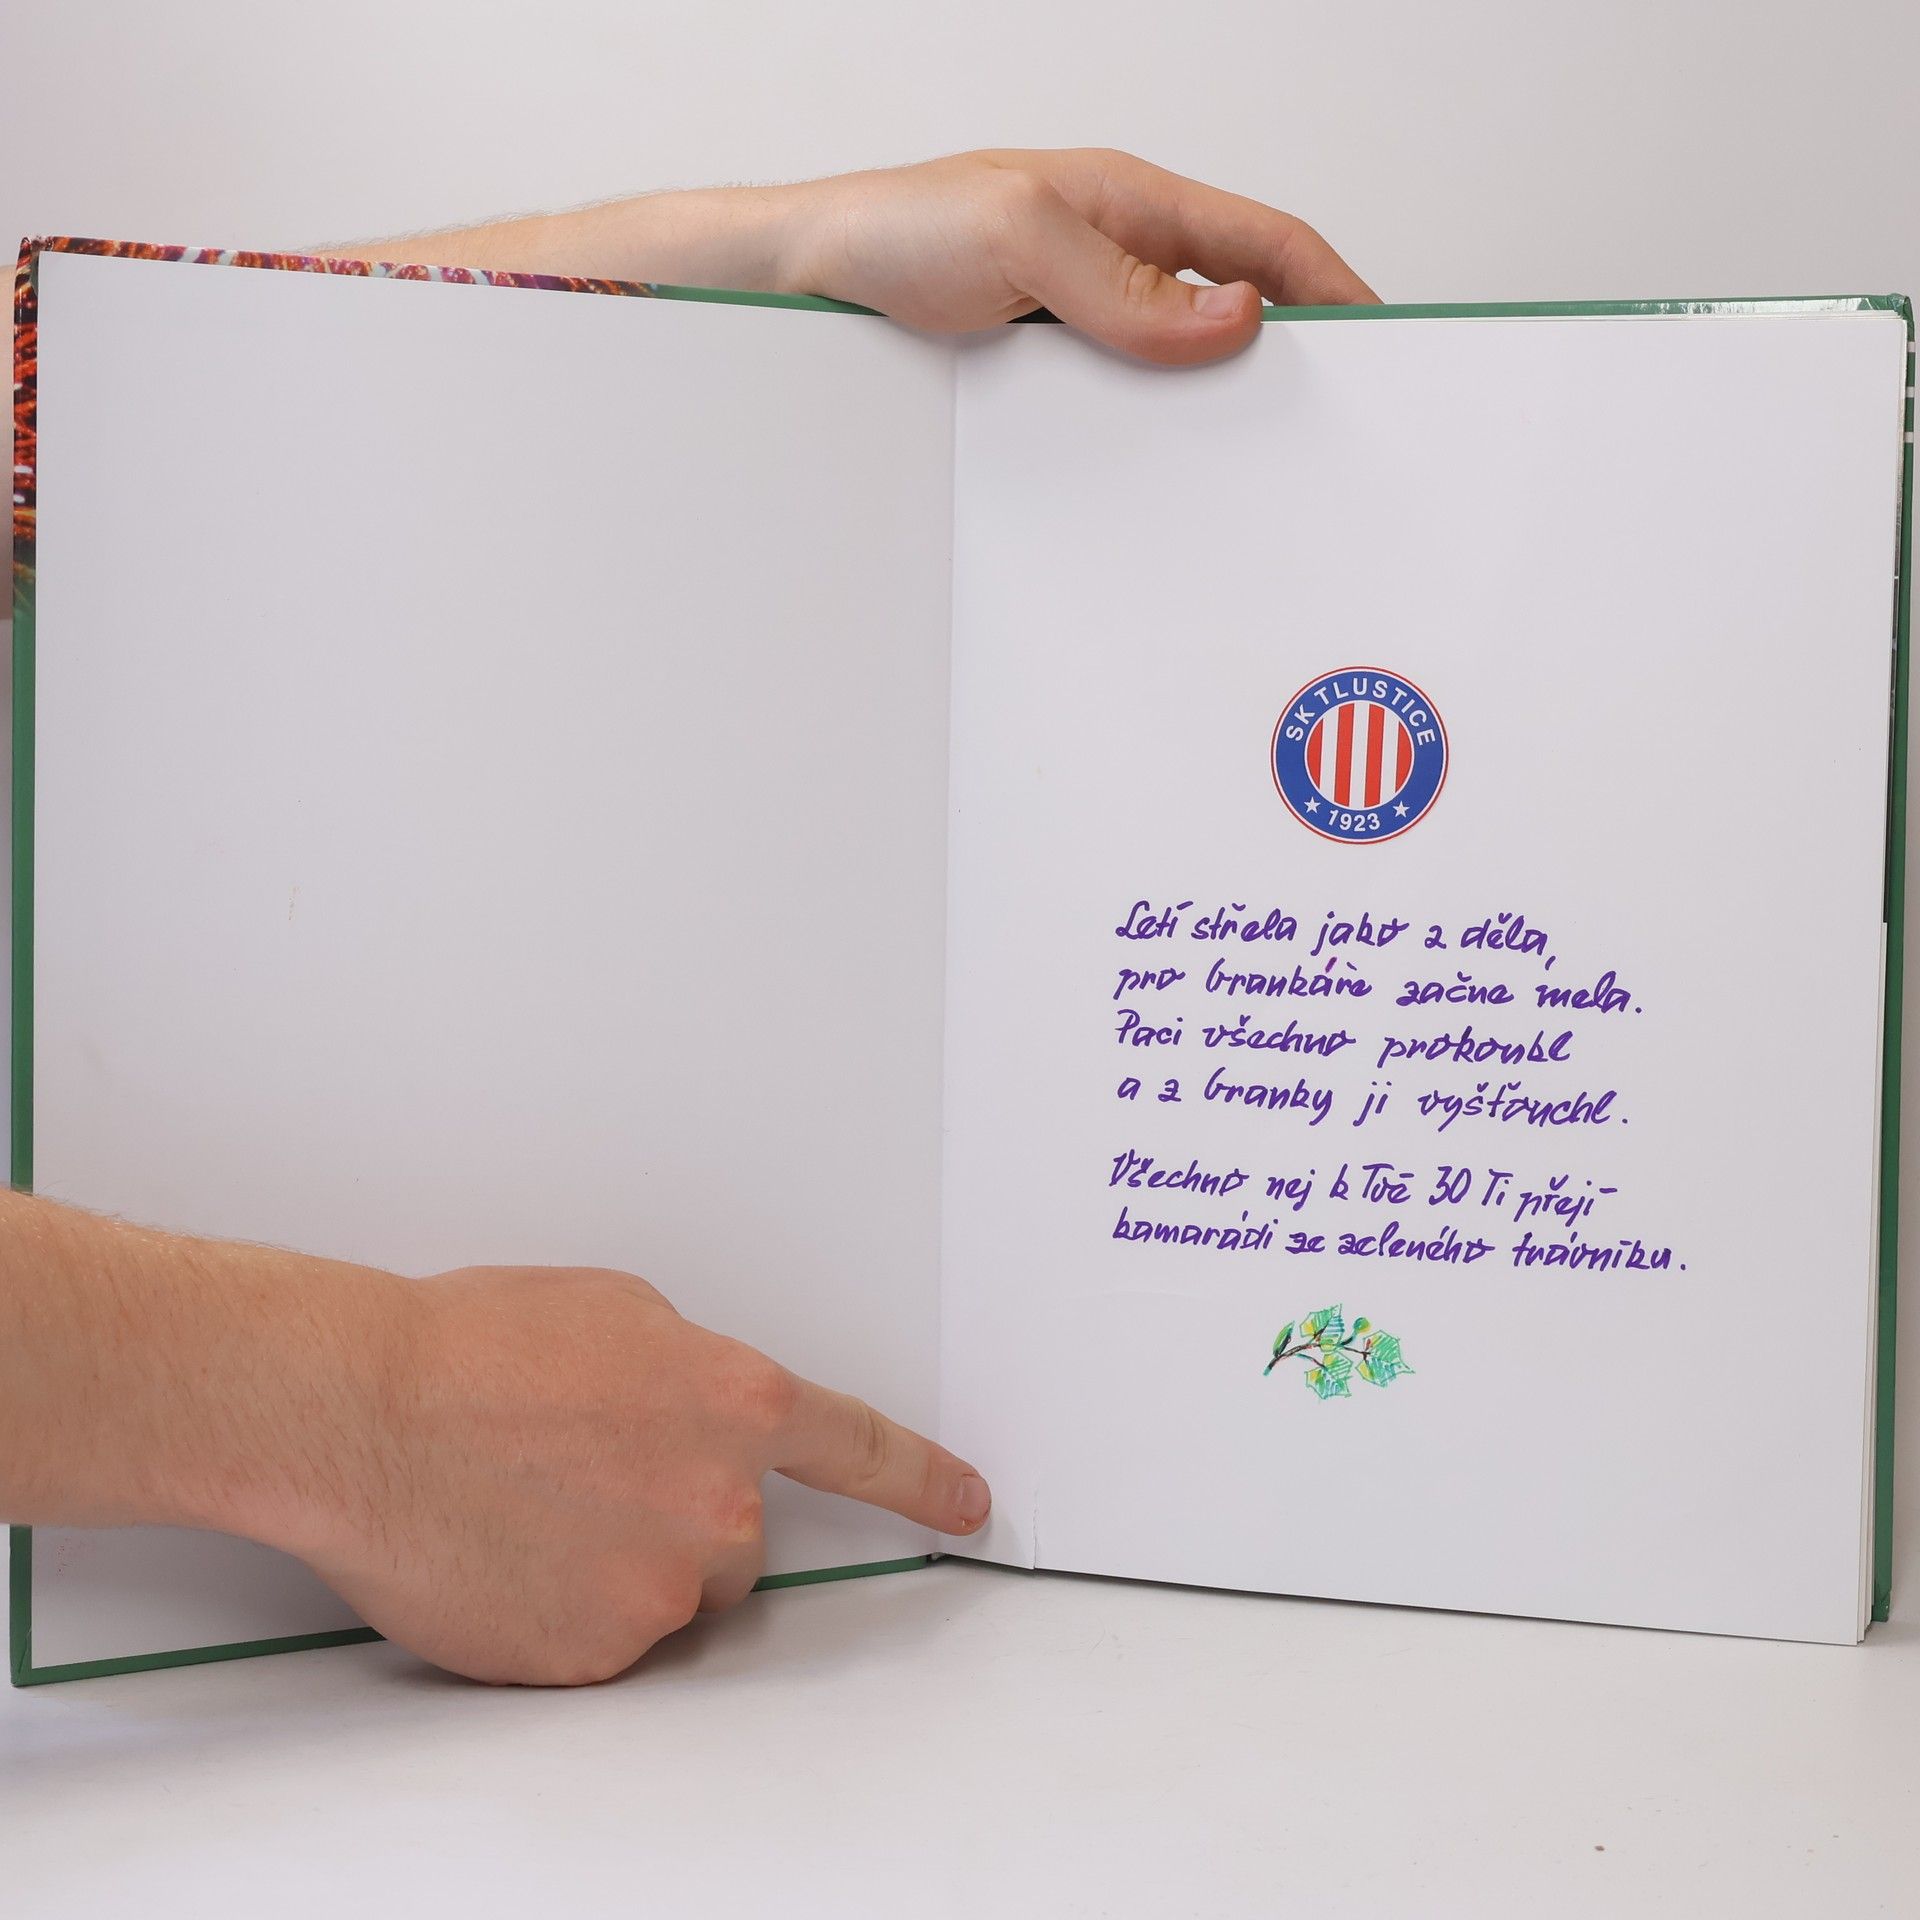 SK TLUSTICE
1923
Letí střela jako z děla,
pro brankáře začne mela.
Paci všechno prokoukl
a z branky ji vyšťouchl.
Všechno nej k Tvé 30 Ti přejí
kamarádi ze zeleného trávníku.